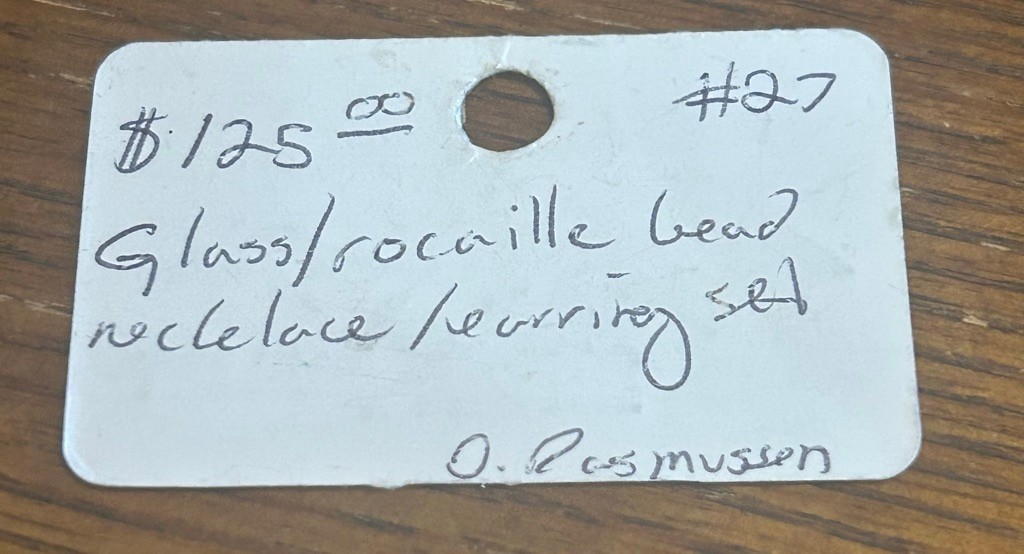 $125 00 #27
Glass/rocaille bead
necklelace/earring set
O. Rasmussen